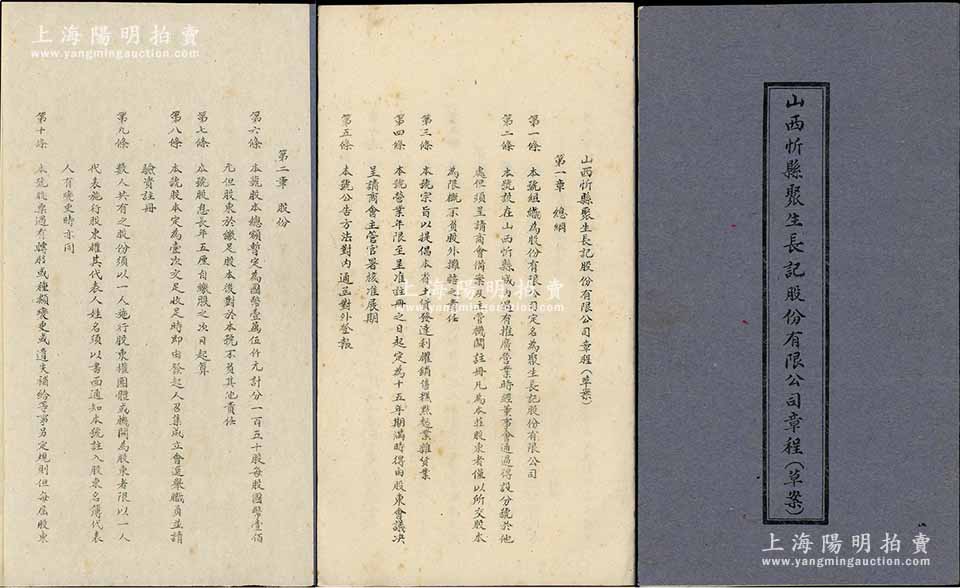 山西忻縣聚生長記股份有限公司章程(草案)
山西忻縣聚生長記股份有限公司章程(草案)
第一章 總綱
第一條 本號組織為股份有限公司定名為聚生長記股份有限公司
第二條 本號設在山西忻縣城內如有推廣營業時經董事會通過得設分號於他
處但須呈請商會備案及主管機關註冊凡為本莊股東者僅以所交股本
為限概不負股外攤賠之責任
第三條 本號宗旨以提倡本省土貨發達利權銷售糕點愁業雜貨業
第四條 本號營業年限至呈准註冊之日起定為十五年期滿時得由股東會議決
呈請商會主管官署核准展期
第五條 本號公告方法對內通函對外登報
第二章 股份
第六條 本號股本總額暫定為國幣壹萬伍仟元計分一百五十股每股國幣壹佰
元但股東於繳足股本後對於本號不負其他責任
第七條 本號股息長年五厘自繳股之次日起算
第八條 本號股本定為壹次交足收足時即由發起人召集成立會選舉職員並請
驗資註冊
第九條 數人共有之股份須以一人施行股東權團體或機關為股東者限以一人
代表施行股東權其代表人姓名須以書面通知本號註入股東名簿代表
人有變更時亦同
第十條 本號股票遇有轉股或種類變更或遺失補給等事另定規則但每屆股東
上海陽明拍賣
www.yangmingauction.com
上海陽明拍賣
www.yangmingauction.com
上海陽明拍賣
www.yangmingauction.com